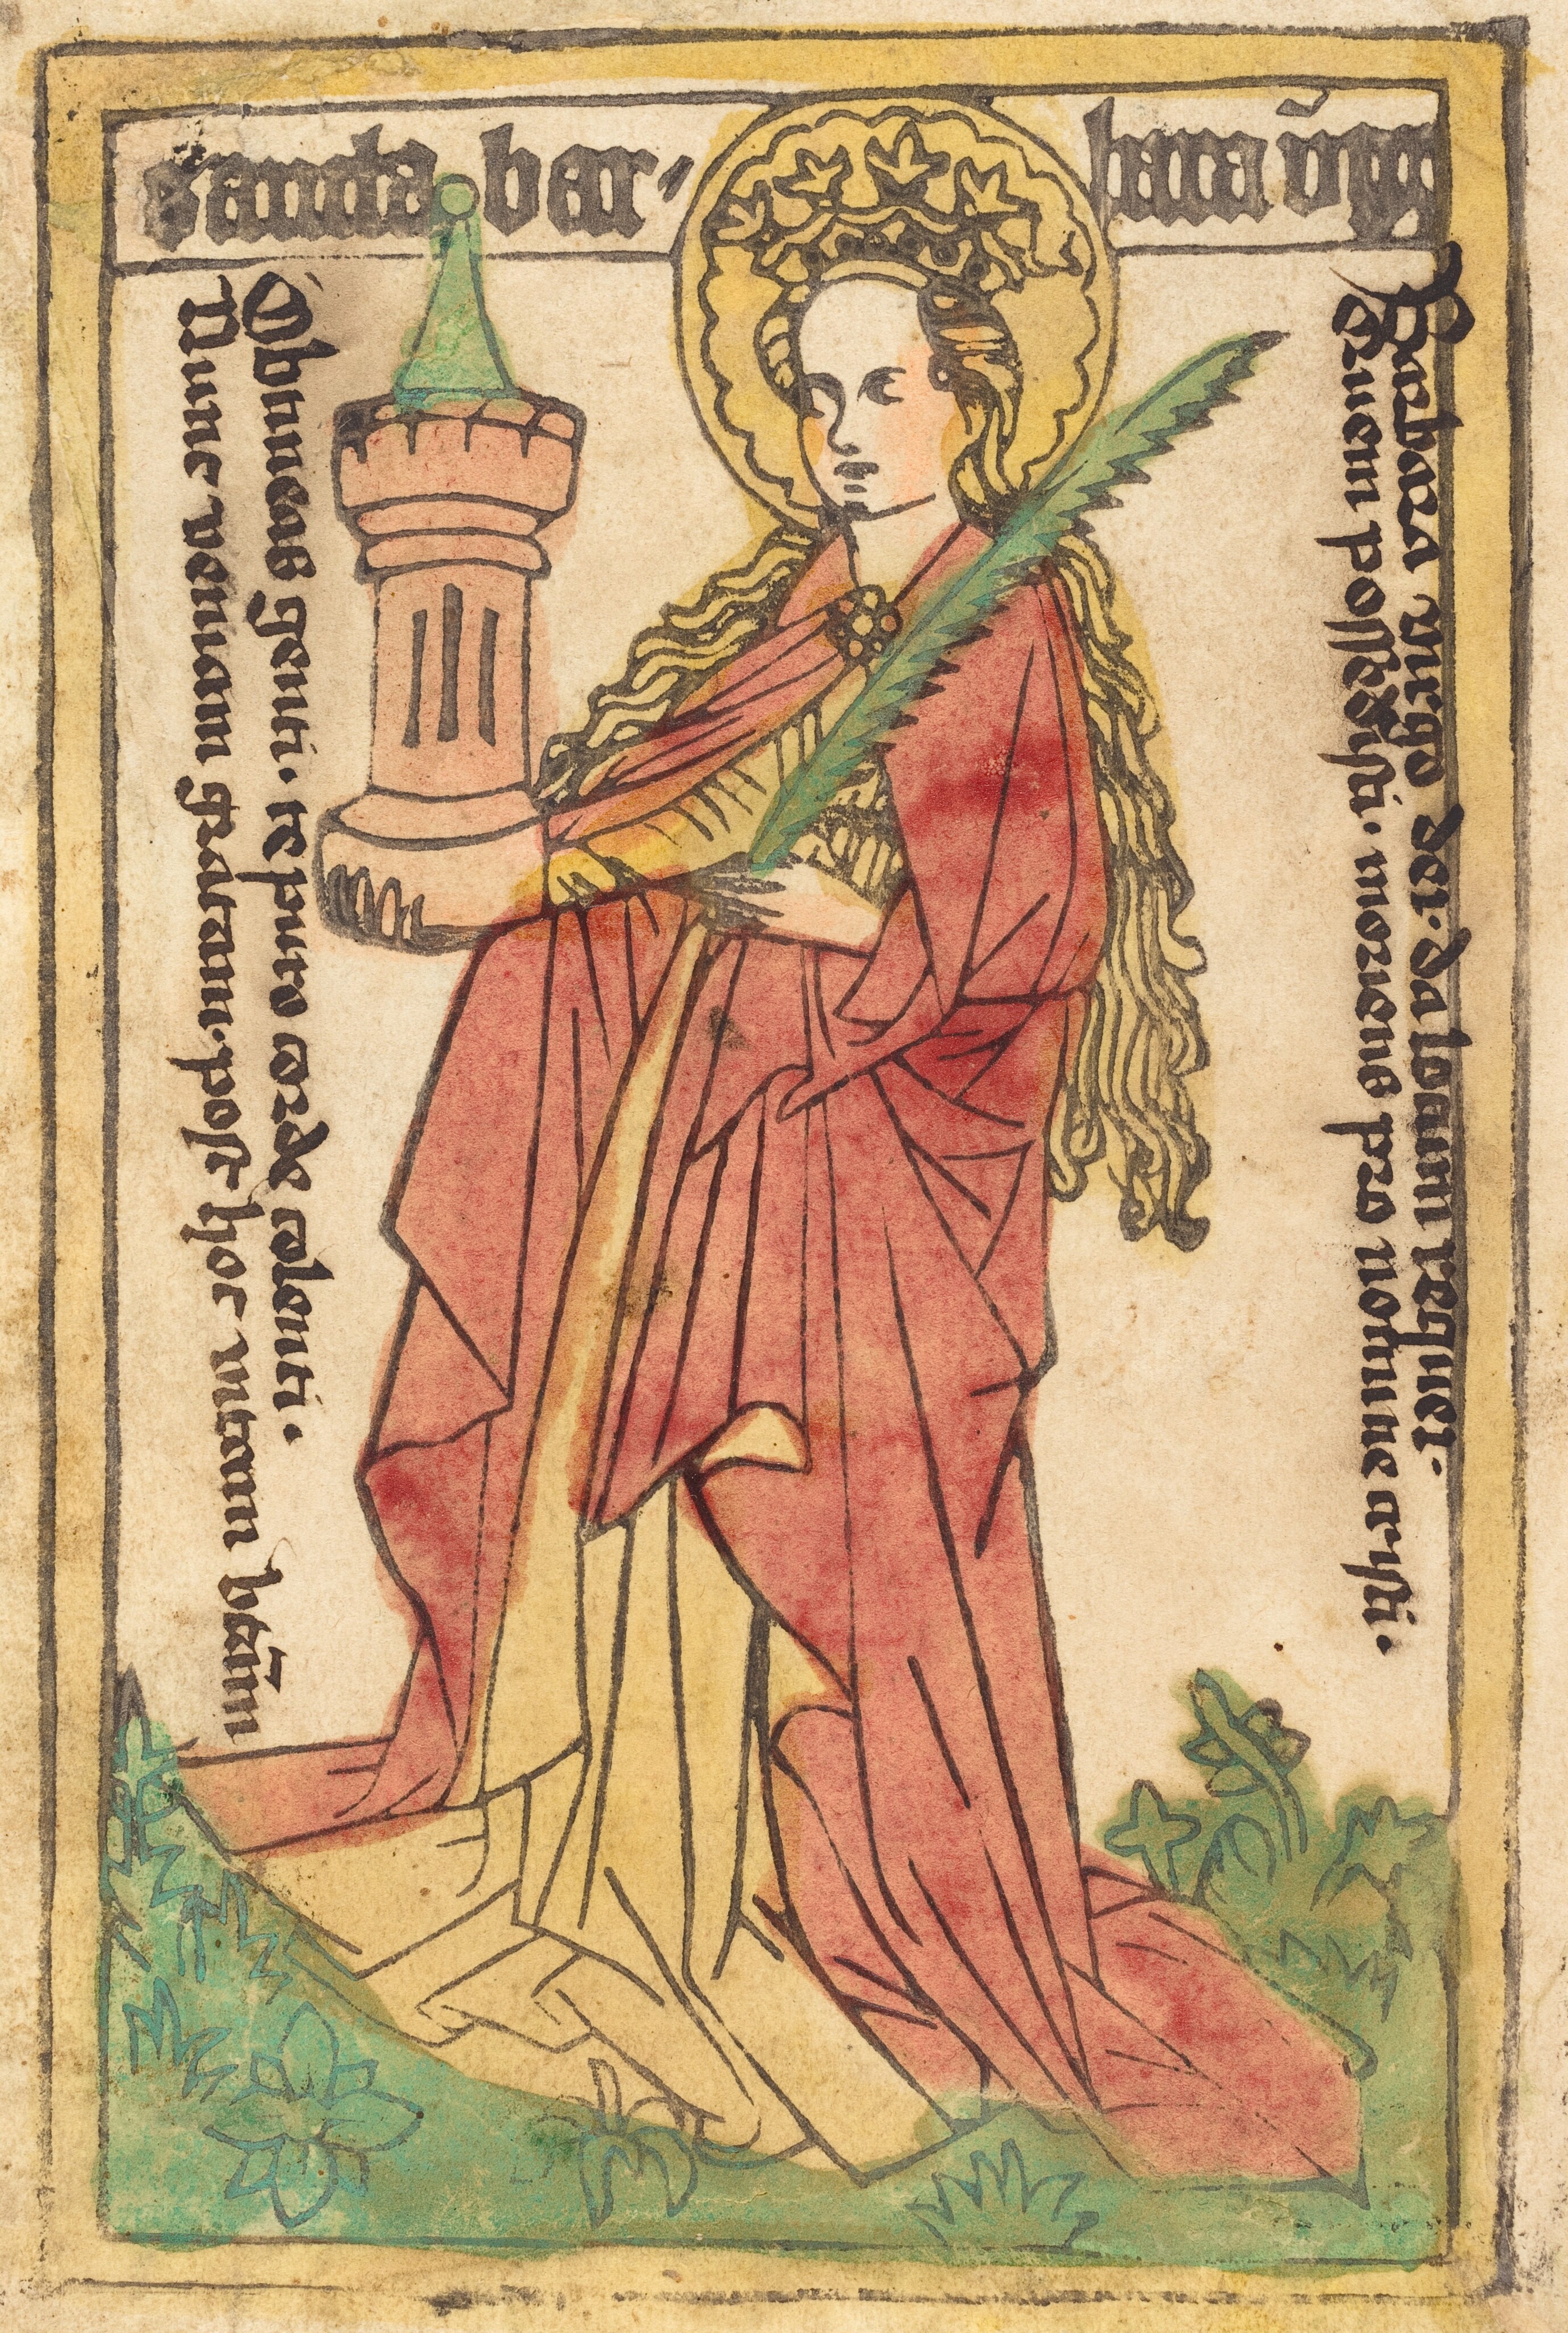 sancta bar- bara
Barbara virgo dei. da locum requiei.
Quem possedisti. moriens pro nomine crysti.
Obtineas genti. te puro corde colenti.
Nunc veniam gratam. post hoc vitam